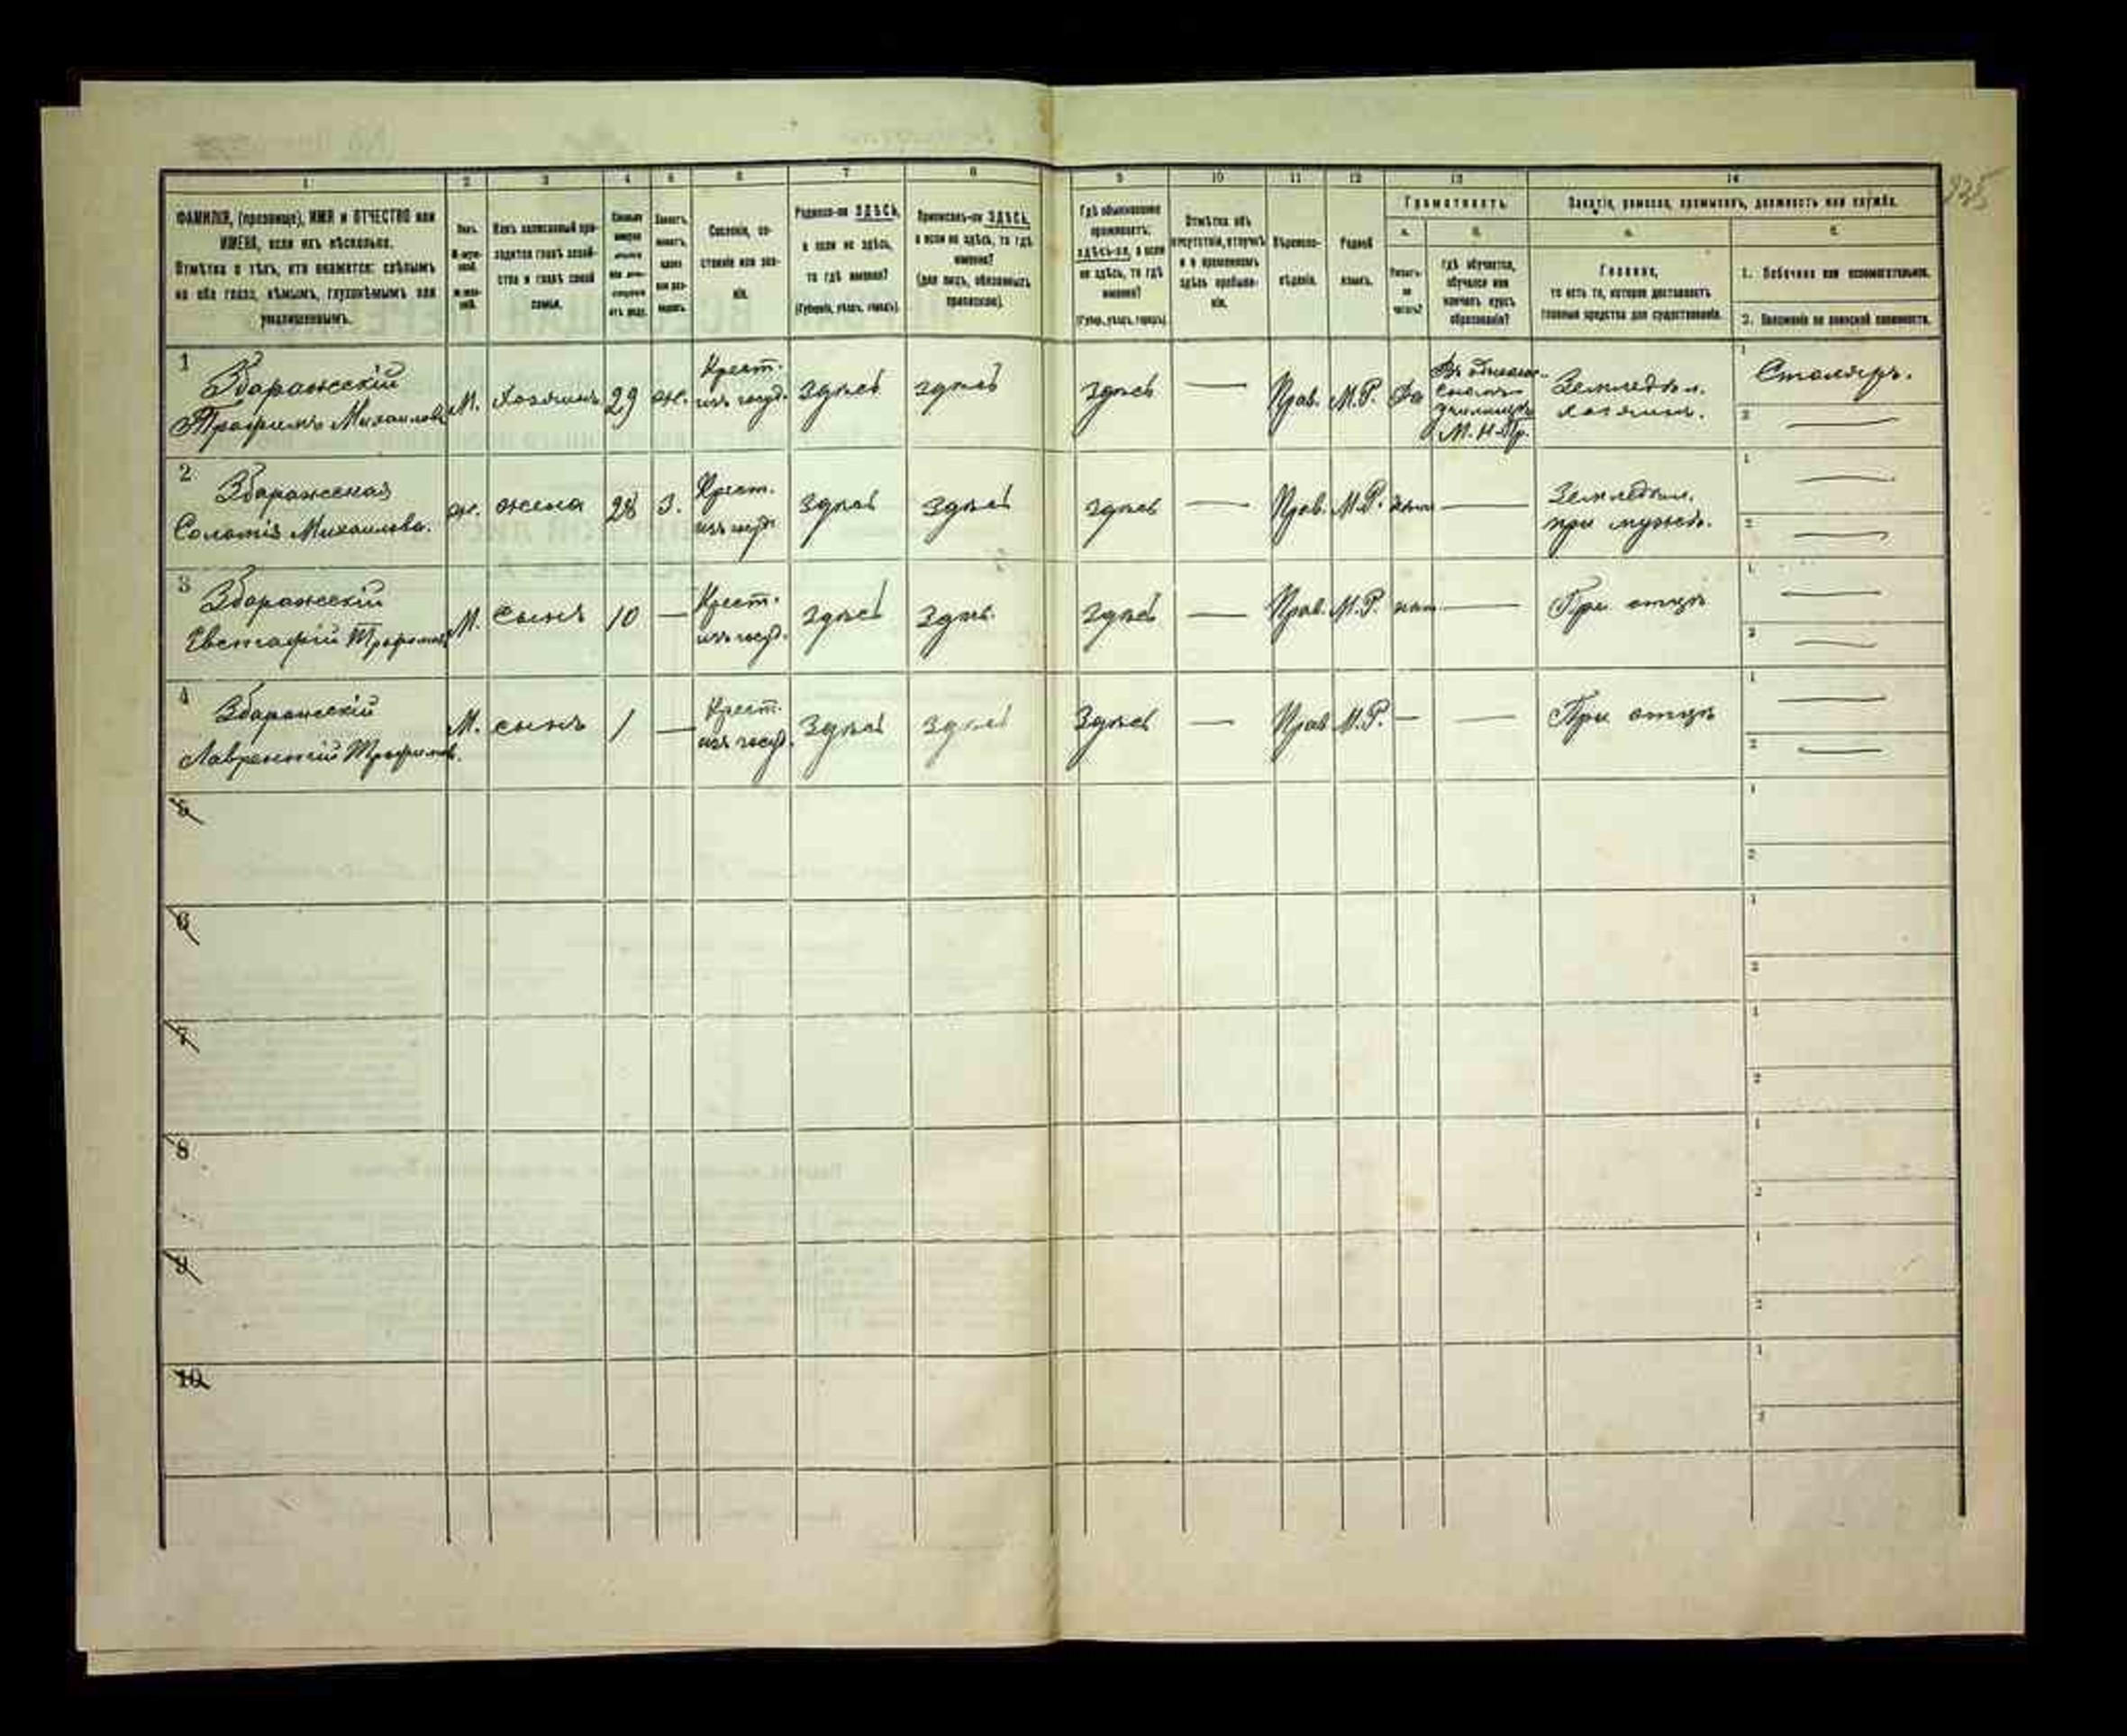 1 2 3 4 5 6 7 8 9 10 11 12 13 14
ФАМИЛІЯ, (прозвище), ИМЯ и ОТЧЕСТВО или
ИМЕНА, если ихъ нѣсколько.
Отмѣтка о тѣхъ, кто окажется: слѣпымъ
на оба глаза, нѣмымъ, глухонѣмымъ или
умалишеннымъ.
Полъ.
Какъ записанный при-
ходится главѣ хозяй-
ства и главѣ своей
семьи.
Сословіе, со-
стояніе или зва-
ніе.
Родился-ли ЗДѢСЬ,
а если не здѣсь,
то гдѣ именно?
(Губернія, уѣздъ, городъ).
Приписанъ-ли ЗДѢСЬ,
а если не здѣсь, то гдѣ
именно?
(для лицъ, обязанныхъ
припискою).
Гдѣ обыкновенно
проживаетъ:
здѣсь-ли, а если
не здѣсь, то гдѣ
именно?
(Губер., уѣздъ, городъ)
Отмѣтка объ
отсутствіи, отлучкѣ
и о временномъ
здѣсь пребыва-
ніи.
Вѣроиспо-
вѣданіе.
Родной
языкъ.
Грамотность.
а. б.
Умѣетъ-
ли
читать?
Гдѣ обучается,
обучался или
кончилъ курсъ
образованія?
Занятіе, ремесло, промыселъ, должность или служба.
а. б.
Главное,
то есть то, которое доставляетъ
главныя средства для существованія.
1. Побочное или вспомогательное.
2. Положеніе по воинской повинности.
1
Збаражскій
Трофимъ Михаилов
М. Хозяинъ 29 ж.
Крест.
изъ госуд.
здѣсь здѣсь здѣсь — Прав. М.Р. Да
училищѣ
М. Н. Пр.
Земледѣл.
хозяинъ.
1 Столяръ.
2 —
2
Збаражская
Соломія Михаилова.
ж. жена 28 З.
Крест.
изъ госуд.
здѣсь здѣсь здѣсь — Прав. М.Р. нѣтъ —
Земледѣл.
при мужѣ.
1 —
2 —
3
Збаражскій
Евстафій Трофимов
М. сынъ 10 —
Крест.
изъ госуд.
здѣсь здѣсь здѣсь — Прав. М.Р. нѣтъ —
При отцѣ
1 —
2 —
4
Збаражскій
Лаврентій Трофимов.
М. сынъ 1 —
Крест.
изъ госуд.
здѣсь здѣсь здѣсь — Прав М.Р. — —
При отцѣ
1 —
2 —
5
1
2
6
1
2
7
1
2
8
1
2
9
1
2
10
1
2